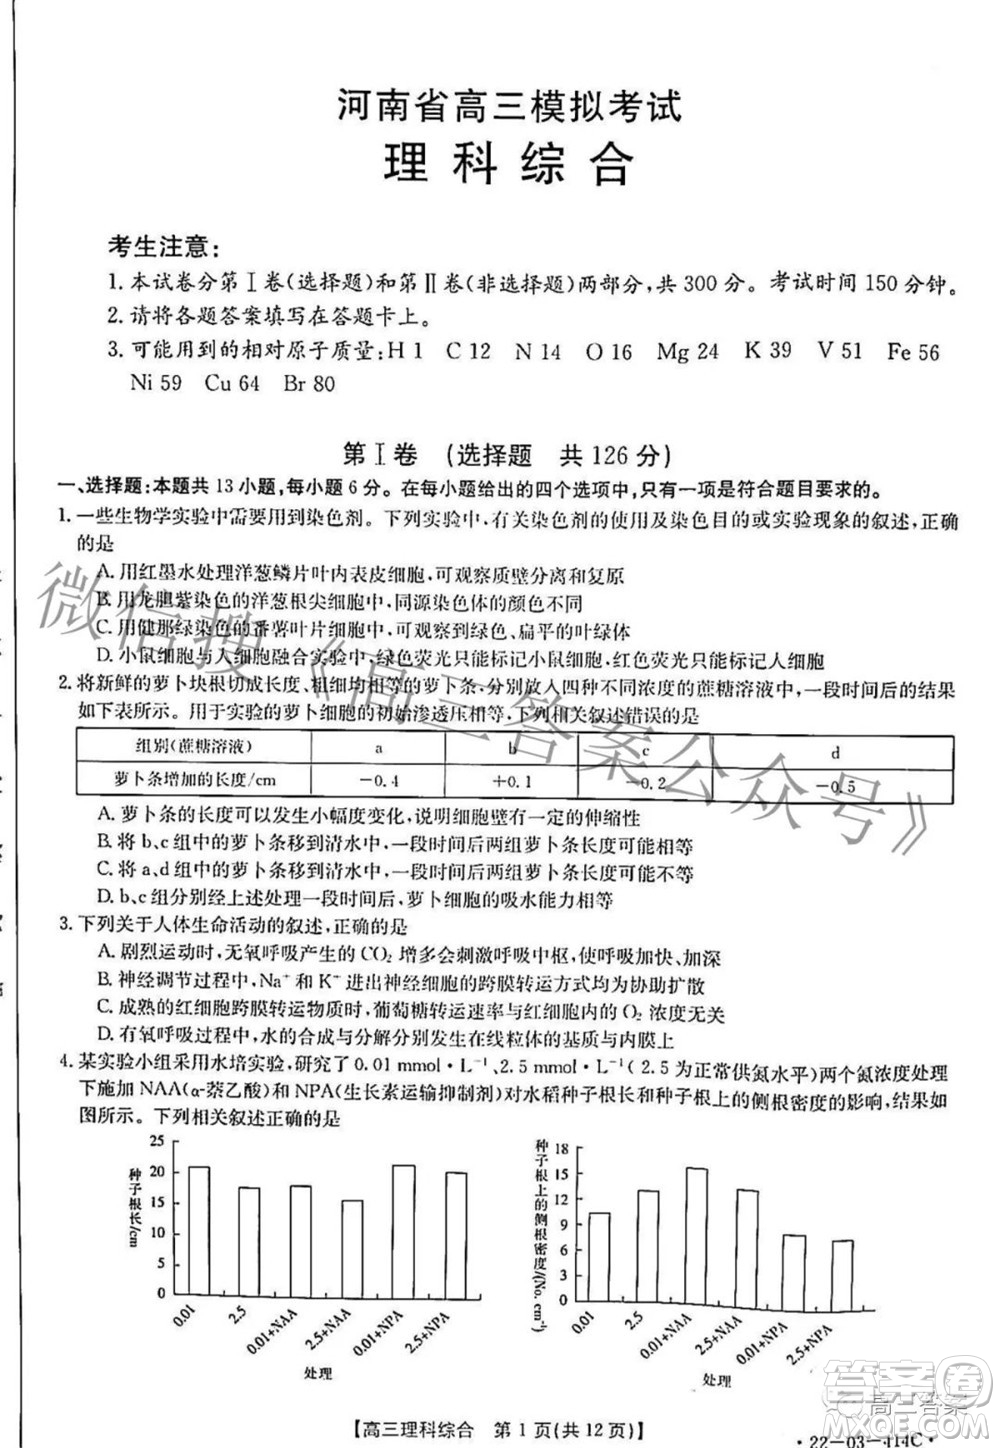 河南省高三模拟考试
理科综合
考生注意:
1.本试卷分第Ⅰ卷(选择题)和第Ⅱ卷(非选择题)两部分,共300分。考试时间150分钟。
2.请将各题答案填写在答题卡上。
3.可能用到的相对原子质量:H 1 C 12 N 14 O 16 Mg 24 K 39 V 51 Fe 56
Ni 59 Cu 64 Br 80
第Ⅰ卷 (选择题 共126分)
一、选择题:本题共13小题,每小题6分。在每小题给出的四个选项中,只有一项是符合题目要求的。
1.一些生物学实验中需要用到染色剂。下列实验中,有关染色剂的使用及染色目的或实验现象的叙述,正确
的是
A.用红墨水处理洋葱鳞片叶内表皮细胞,可观察质壁分离和复原
B.用龙胆紫染色的洋葱根尖细胞中,同源染色体的形态不同
C.用健那绿染色的番薯叶片细胞,可观察到绿色、扁平的叶绿体
D.小鼠细胞与人细胞融合实验中,绿色荧光只能标记小鼠细胞,红色荧光只能标记人细胞
2.将新鲜的萝卜块根切成长度、粗细均相等的萝卜条,分别放入四种不同浓度的蔗糖溶液中,一段时间后的结果
如下表所示。用于实验的萝卜细胞的初始渗透压相等,下列相关叙述错误的是
组别(蔗糖溶液) a b c d
萝卜条增加的长度/cm －0.4 ＋0.1 －0.2 －0.5
A.萝卜条的长度可以发生小幅度变化,说明细胞壁有一定的伸缩性
B.将b、c组中的萝卜条移到清水中,一段时间后两组萝卜条长度可能相等
C.将a、d组中的萝卜条移到清水中,一段时间后两组萝卜条长度可能不等
D.b、c组分别经上述处理一段时间后,萝卜细胞的吸水能力相等
3.下列关于人体生命活动的叙述,正确的是
A.剧烈运动时,无氧呼吸产生的CO₂增多会刺激呼吸中枢,使呼吸加快、加深
B.神经调节过程中,Na⁺和K⁺进出神经细胞的跨膜转运方式均为协助扩散
C.成熟的红细胞跨膜转运物质时,葡萄糖转运速率与红细胞内的O₂浓度无关
D.有氧呼吸中,水的合成与分解分别发生在线粒体的基质与内膜上
4.某实验小组采用水培实验,研究了0.01 mmol·L⁻¹、2.5 mmol·L⁻¹(2.5为正常供氮水平)两个氮浓度处理
下施加NAA(α-萘乙酸)和NPA(生长素运输抑制剂)对水稻种子根长和种子根上的侧根密度的影响,结果如
图所示。下列相关叙述正确的是
种子根长/cm
25
20
15
10
5
0
0.01 2.5 0.01+NAA 2.5+NAA 0.01+NPA 2.5+NPA
处理
种子根上的侧根密度/(No. cm⁻¹)
18
15
12
9
6
3
0
0.01 2.5 0.01+NAA 2.5+NAA 0.01+NPA 2.5+NPA
处理
【高三理科综合 第1页(共12页)】
·22-03-414C·
微信搜《高三答案公众号》
高三答案
MXQE.COM